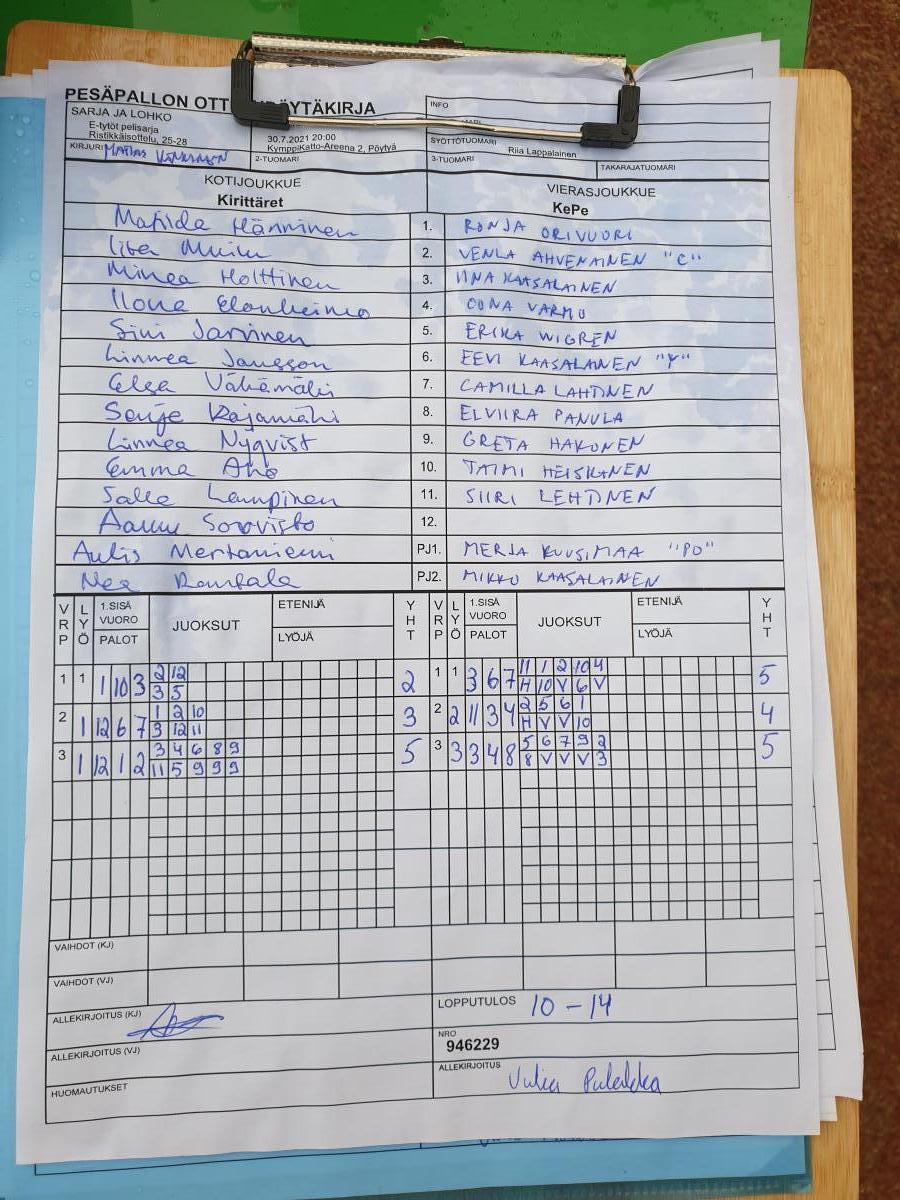 PESÄPALLON OTT ÖYTÄKIRJA
SARJA JA LOHKO
E-tytöt pelisarja
Ristikkäisottelu, 25-28
30.7.2021 20:00
KymppiKatto-Areena 2, Pöytyä
INFO
SYÖTTÖTUOMARI
Riia Lappalainen
KIRJURI
2-TUOMARI
3-TUOMARI
TAKARAJATUOMARI
KOTIJOUKKUE
Kirittäret
VIERASJOUKKUE
KePe
Matilda Hänninen 1. RONJA ORIVUORI
2. VENLA AHVENAINEN "C"
Minea Holttinen 3. IINA KAASALAINEN
Ilona 4. OONA VARMO
Sini Järvinen 5. ERIKA WIGREN
Linnea Jansson 6. EEVI KAASALAINEN "Y"
Elsa Vähämäki 7. CAMILLA LAHTINEN
Rajamäki 8. ELVIIRA PANULA
Linnea Nyqvist 9. GRETA HAKONEN
Emma Aho 10. TAIMI HEISKANEN
Salla Lempinen 11. SIIRI LEHTINEN
Sorvisto 12.
Aulis Mertaniemi PJ1. MERJA KUUSIMAA "PO"
Nea Rantala PJ2. MIKKO KAASALAINEN
VRP LYÖ 1.SISÄ VUORO PALOT JUOKSUT ETENIJÄ LYÖJÄ YHT VRP LYÖ 1.SISÄ VUORO PALOT JUOKSUT ETENIJÄ LYÖJÄ YHT
1 1 1 10 3 2 12 2 1 1 3 6 7 11 1 2 10 4 5
3 5 H 10 V 6 V
2 1 12 6 7 1 2 10 3 2 2 11 3 4 2 5 6 1 4
3 12 11 H V V 10
3 1 12 1 2 3 4 6 8 9 5 3 3 3 4 8 5 6 7 9 2 5
11 5 9 9 9 8 V V V 3
VAIHDOT (KJ)
VAIHDOT (VJ)
ALLEKIRJOITUS (KJ)
LOPPUTULOS 10 - 14
ALLEKIRJOITUS (VJ)
NRO
946229
HUOMAUTUKSET
ALLEKIRJOITUS